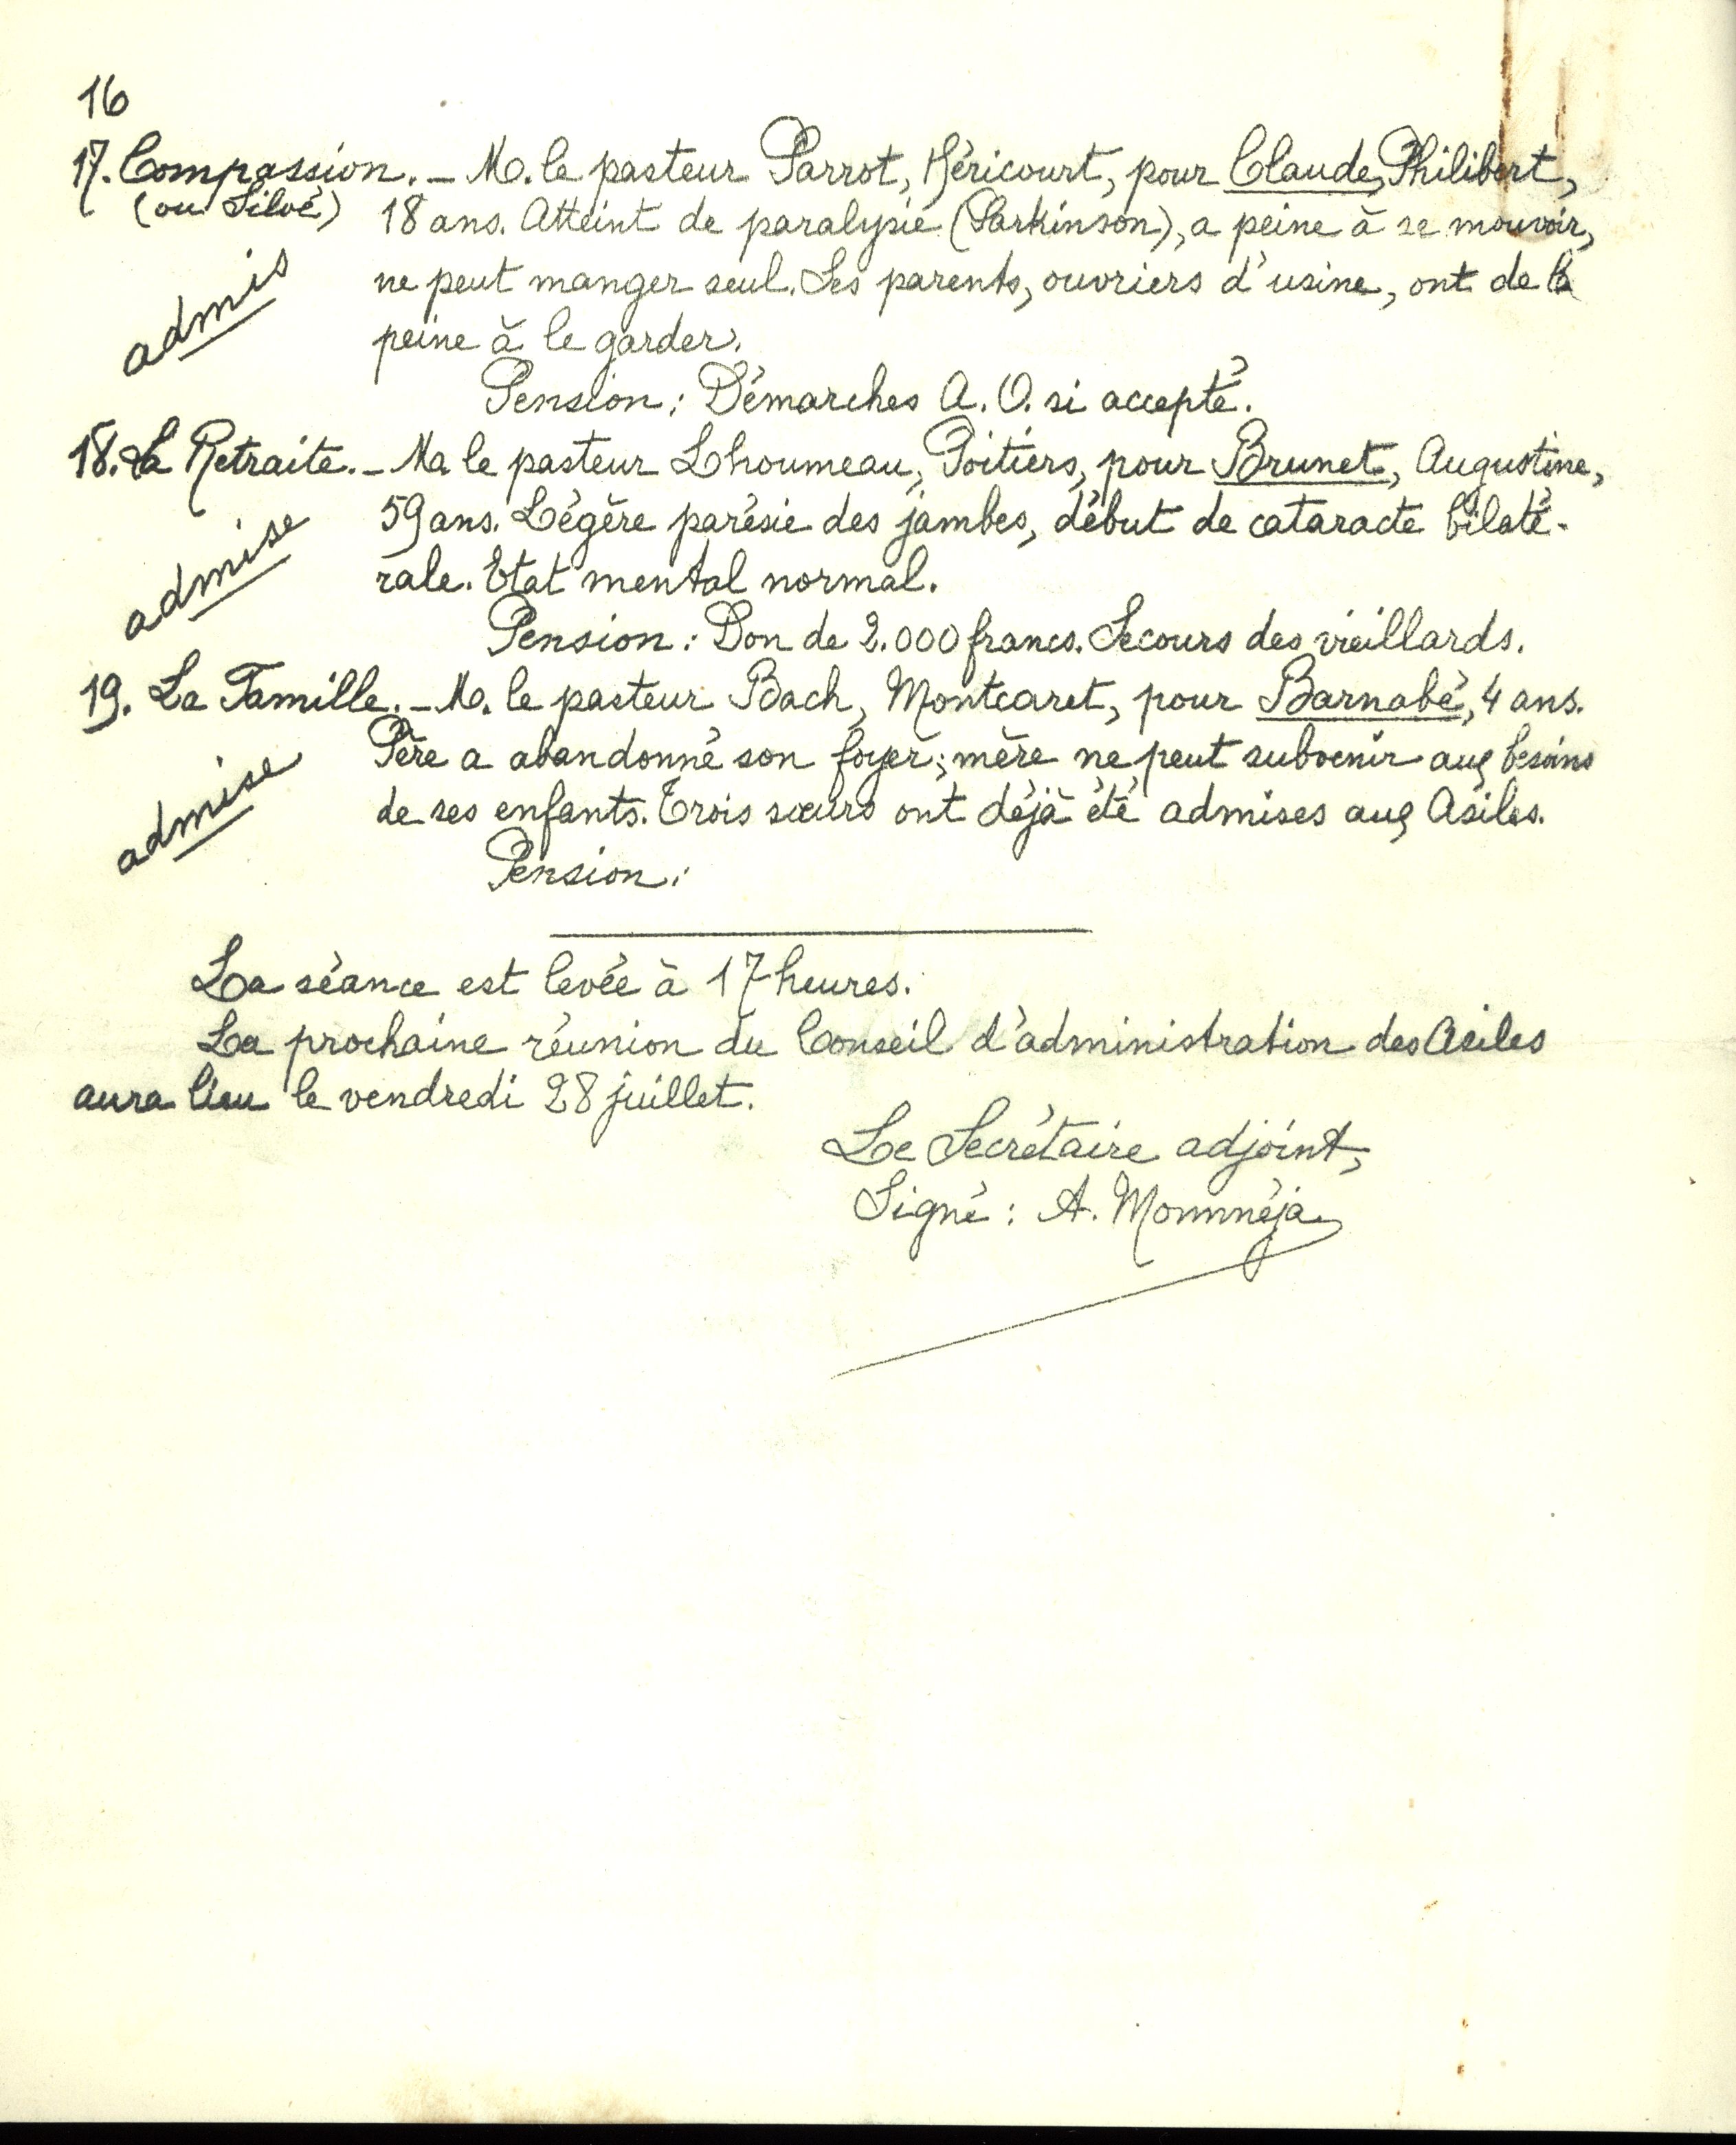 16
17. Compassion. – M. le pasteur Parrot, Héricourt, pour Claude, Philibert,
(ou Siloé) 18 ans. Atteint de paralysie (Parkinson), a peine à se mouvoir,
admis
ne peut manger seul. Ses parents, ouvriers d'usine, ont de la
peine à le garder.
Pension : Démarches A. O. si accepté.
18. La Retraite. – Ma le pasteur Lhoumeau, Poitiers, pour Brunet, Augustine,
admise
59 ans. Légère parésie des jambes, début de cataracte bilaté-
rale. Etat mental normal.
Pension : Don de 2.000 francs. Secours des vieillards.
19. La Famille. – M. le pasteur Bach, Montcaret, pour Barnabé, 4 ans.
admise
Père a abandonné son foyer ; mère ne peut subvenir aux besoins
de ses enfants. Trois sœurs ont déjà été admises aux Asiles.
Pension :
La séance est levée à 17 heures.
La prochaine réunion du Conseil d'administration des Asiles
aura lieu le vendredi 28 juillet.
Le Secrétaire adjoint,
Signé : A. Mommméja